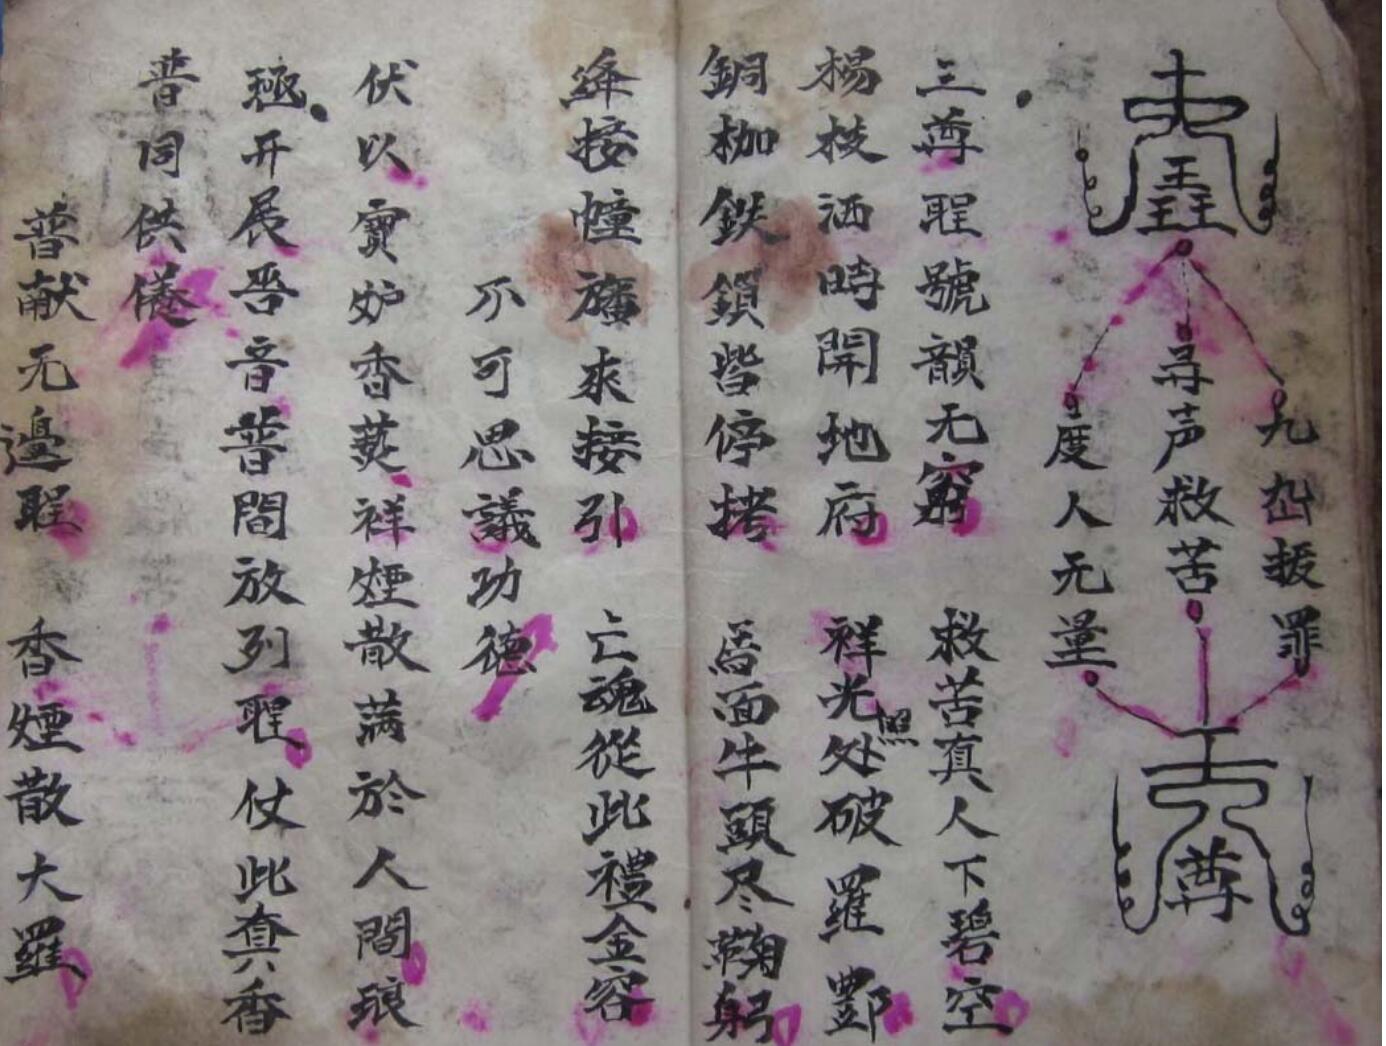 九幽拔罪
尋声救苦
度人无量
天尊
三尊聖號韻无窮 救苦真人下碧空
楊枝洒時開地府 祥光照处破羅酆
銅枷鉄鎖皆停拷 馬面牛頭尽鞠躬
絳接幢旛來接引 亡魂從此禮金容
不可思議功德
伏以寶炉香焚祥煙散滿於人間琅
开展吾音普間放列聖仗此真香
普同供養
普献无邊聖 香煙散大羅